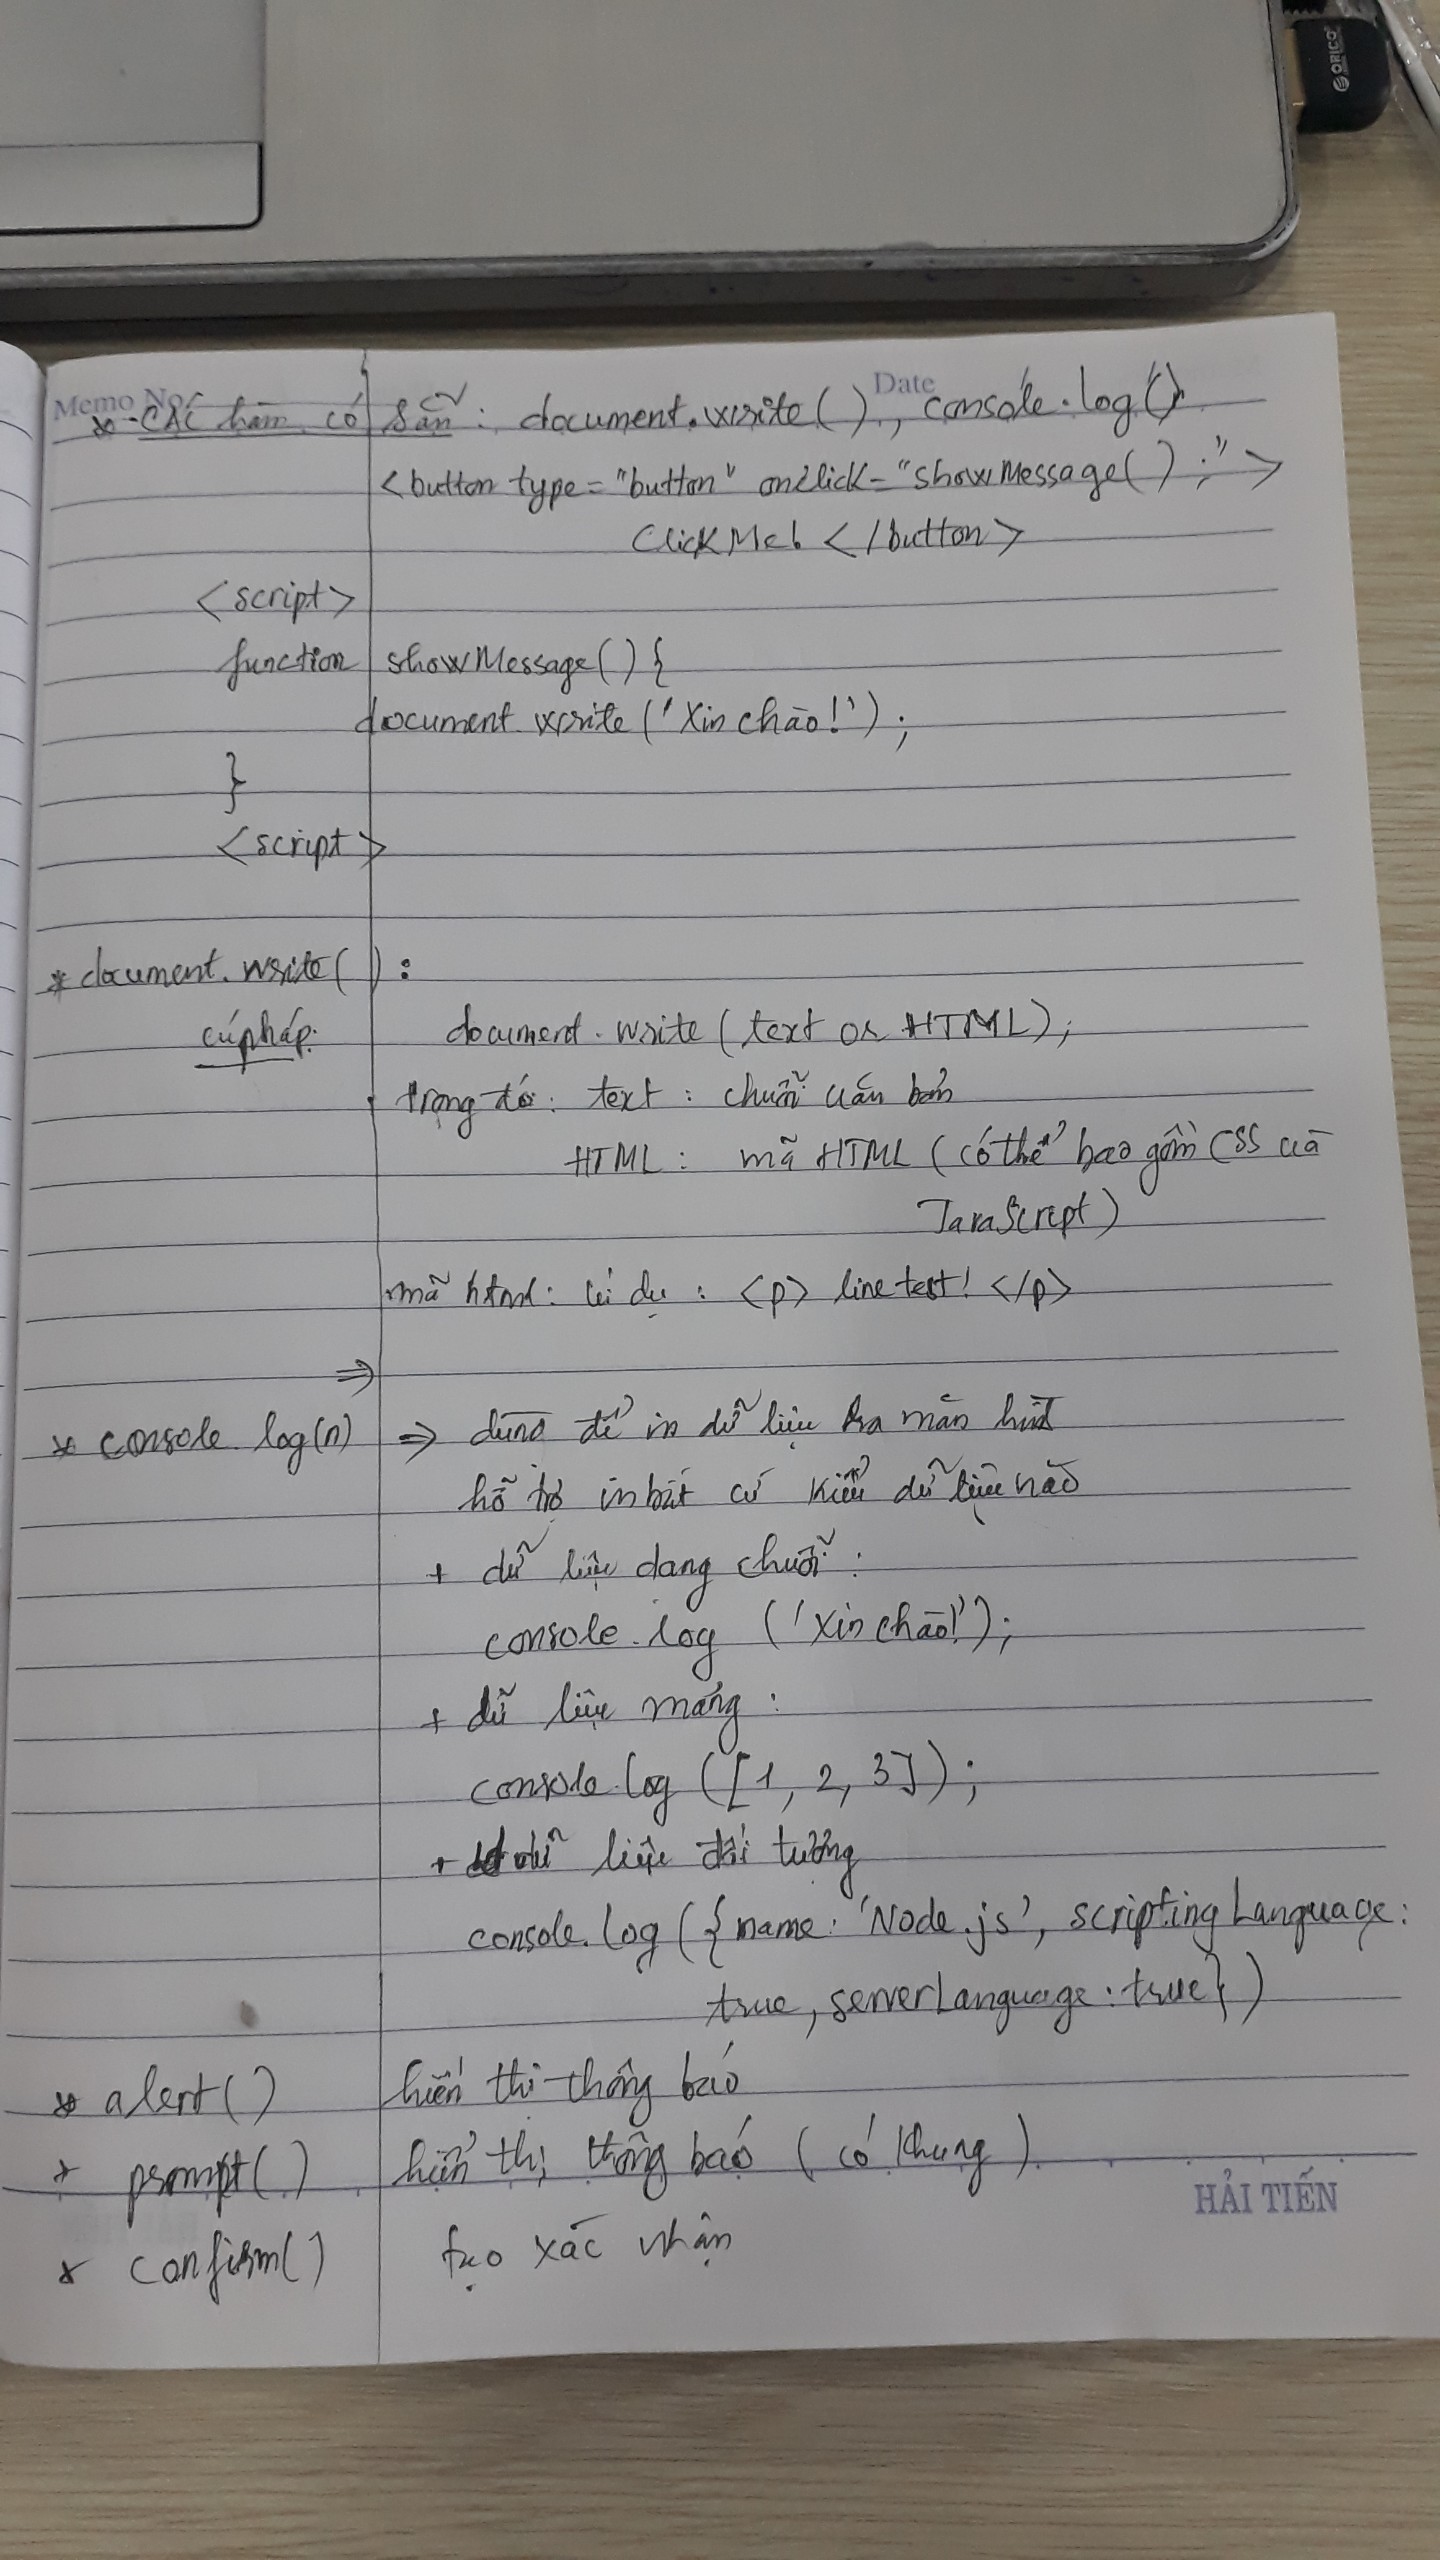 ORICO
Memo No.
Date
* - CÁC hàm có sẵn : document.write(), console.log()
<button type="button" onclick="showMessage();">
Click Me! </button>
<script>
function showMessage(){
document.write('Xin chào!');
}
<script>
* document.write( ) :
cú pháp: document.write(text or HTML);
trong đó: text : chuỗi văn bản
HTML : mã HTML (có thể bao gồm CSS và
JavaScript)
mã html: ví dụ : <p> line test! </p>
⇒
* console.log(n) ⇒ dùng để in dữ liệu ra màn hình
hỗ trợ in bất cứ kiểu dữ liệu nào
+ dữ liệu dạng chuỗi :
console.log ('Xin chào!');
+ dữ liệu mảng :
console.log ([1, 2, 3]);
+ dữ liệu đối tượng
console.log ({name: 'Node.js', scriptingLanguage:
true, serverLanguage: true})
* alert() hiển thị thông báo
* prompt() hiển thị thông báo (có khung)
HẢI TIẾN
* confirm() tạo xác nhận